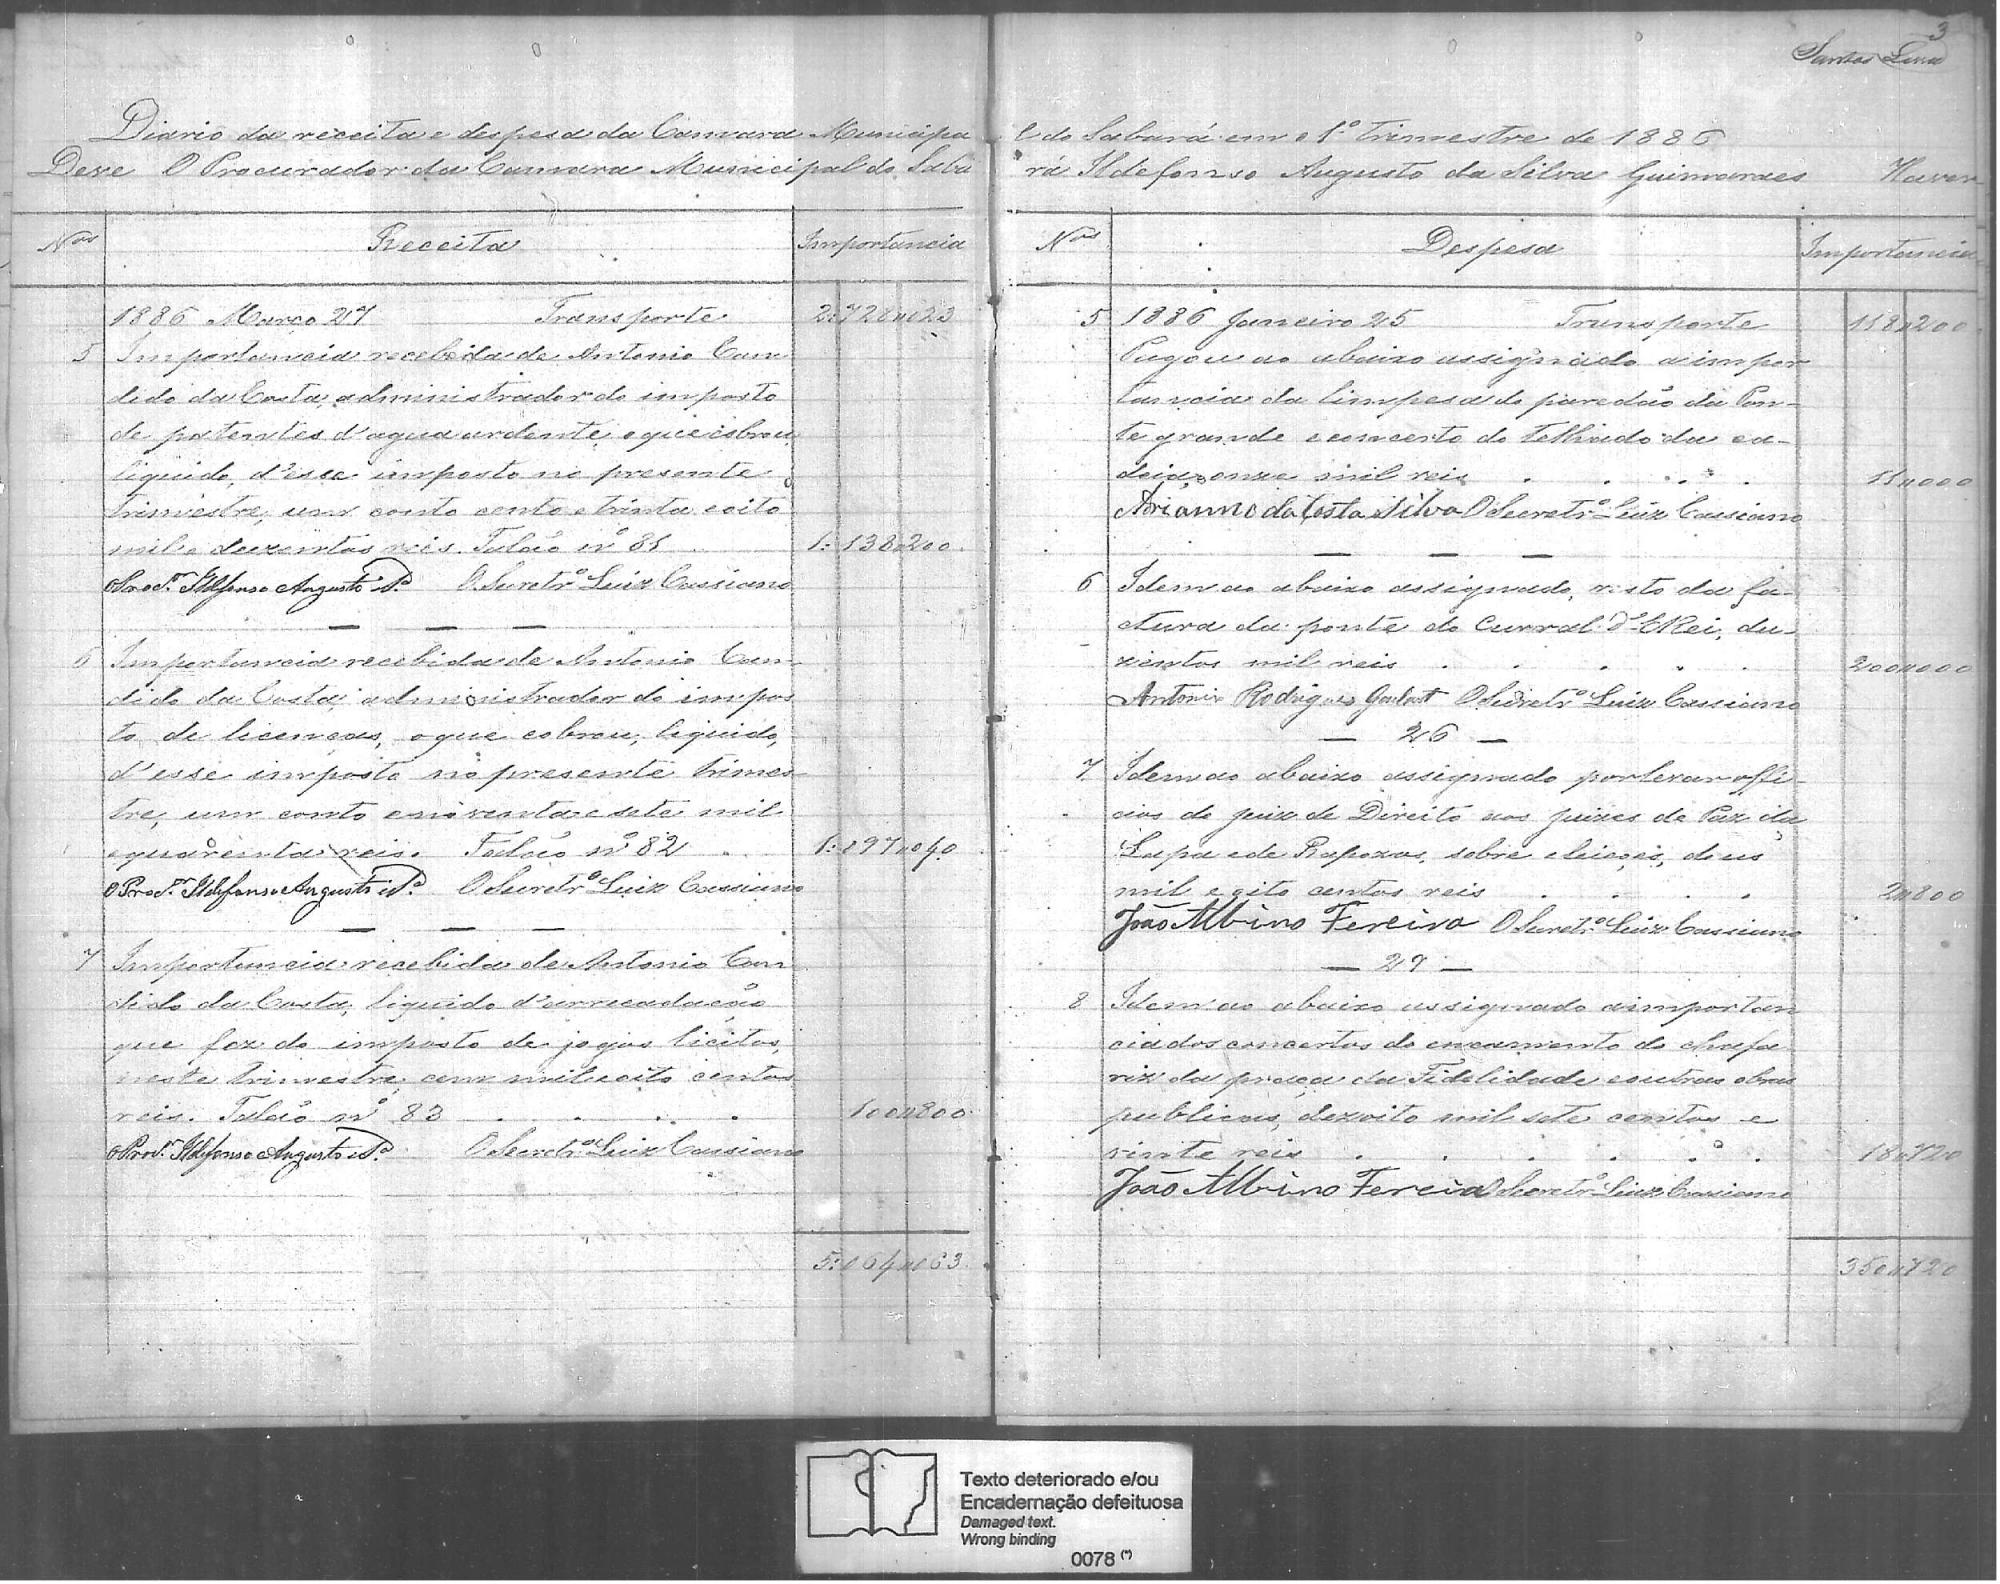 3
Santos Lima
Diario da receita e despesa da Camara Municipa
Deve O Procurador da Camara Municipal do Saba
Nos Receita Importancia
1886 Março 27 Transporte 2:728"023
5 Importancia recebida de Antonio Can
dido da Costa, administrador do imposto
de patentes d'aguaardente, o que cobrou,
liquido, d'esse imposto no presente
trimestre, um conto cento e trinta e oito
mil e duzentos reis. Talão nº 81 1:138"200
O Procor. Ildefonso Augusto da Sa. O Secretrº Luiz Cassiano
6 Importancia recebida de Antonio Can-
dido da Costa, administrador do impos
to de licenças, o que cobrou, liquido,
d'esse imposto no presente trimes-
tre, um conto e noventa e sete mil
e quarenta reis. Talão nº 82 1:097"040
O Procor. Ildefonso Augusto da Sa. O Secretrº Luiz Cassiano
7 Importancia recebida de Antonio Can
dido da Costa, liquido d'arrecadação
que fez do imposto de jogos licitos,
neste trimestre, cem mil e oito centos
reis. Talão nº 83 100"800
O Procor. Ildefonso Augusto da Sa. O Secretrº Luiz Cassiano
5:064"063
l do Sabará em o 1º trimestre de 1886
rá Ildefonso Augusto da Silva Guimaraes Haver
Nos Despesa Importancia
5 1886 Janeiro 25 Transporte 118"200
Pagou ao abaixo assignado a impor
tancia da limpesa do paredão da Pon-
te grande e concerto do telhado da ca-
deia, onze mil reis 11"000
Adrianno da Costa Silva O Secretrº Luiz Cassiano
6 Idem ao abaixo assignado, resto da fa-
ctura da ponte do Curral d'ElRei, du-
zentos mil reis 200"000
Antonio Rodrigues Goulart O Secretrº Luiz Cassiano
— 26 —
7 Idem ao abaixo assignado por levar offi-
cios do juiz de Direito aos juizes de Paz da
Lapa e de Rapozos, sobre eleições, dous
mil e oito centos reis 2"800
João Albino Fereira O Secretrº Luiz Cassiano
— 27 —
8 Idem ao abaixo assignado a importan
cia dos concertos do encamento do chafa
riz da praça da Fidelidade e outras obras
publicas, dezoito mil sete centos e
vinte reis 18"720
João Albino Fereira O Secretrº Luiz Cassiano
350"720
Texto deteriorado e/ou
Encadernação defeituosa
Damaged text.
Wrong binding
0078 (*)